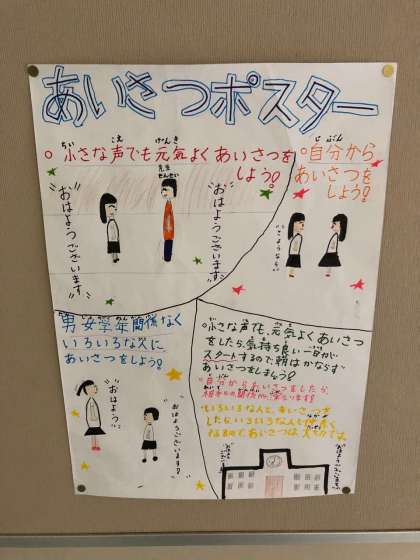 あいさつポスター
○小さな声でも元気よくあいさつを
しよう!
先生
せんせい
"おはようございます"
"おはようございます"
○自分から
あいさつを
しよう!
"さようなら"
男女学年関係なく
いろいろな人に
あいさつをしよう!
"おはよう"
"おはようございます!"
○小さな声でも、元気よくあいさつ
をしたら、気持ち良い一日が
スタートするので朝はかならず
あいさつをしましょう!
○自分からあいさつをしましたら、
いろいろな人と、あいさつを
したら、いろいろな人とも
なるので、あいさつは
"おはようございます"